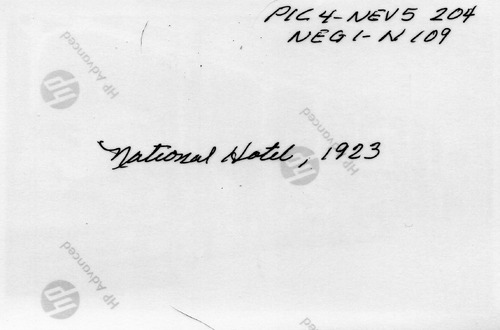 PIC 4-NEV5 204
NEG 1-N 109
National Hotel, 1923
HP Advanced
hp
HP Advanced
hp
HP Advanced
hp
HP Advanced